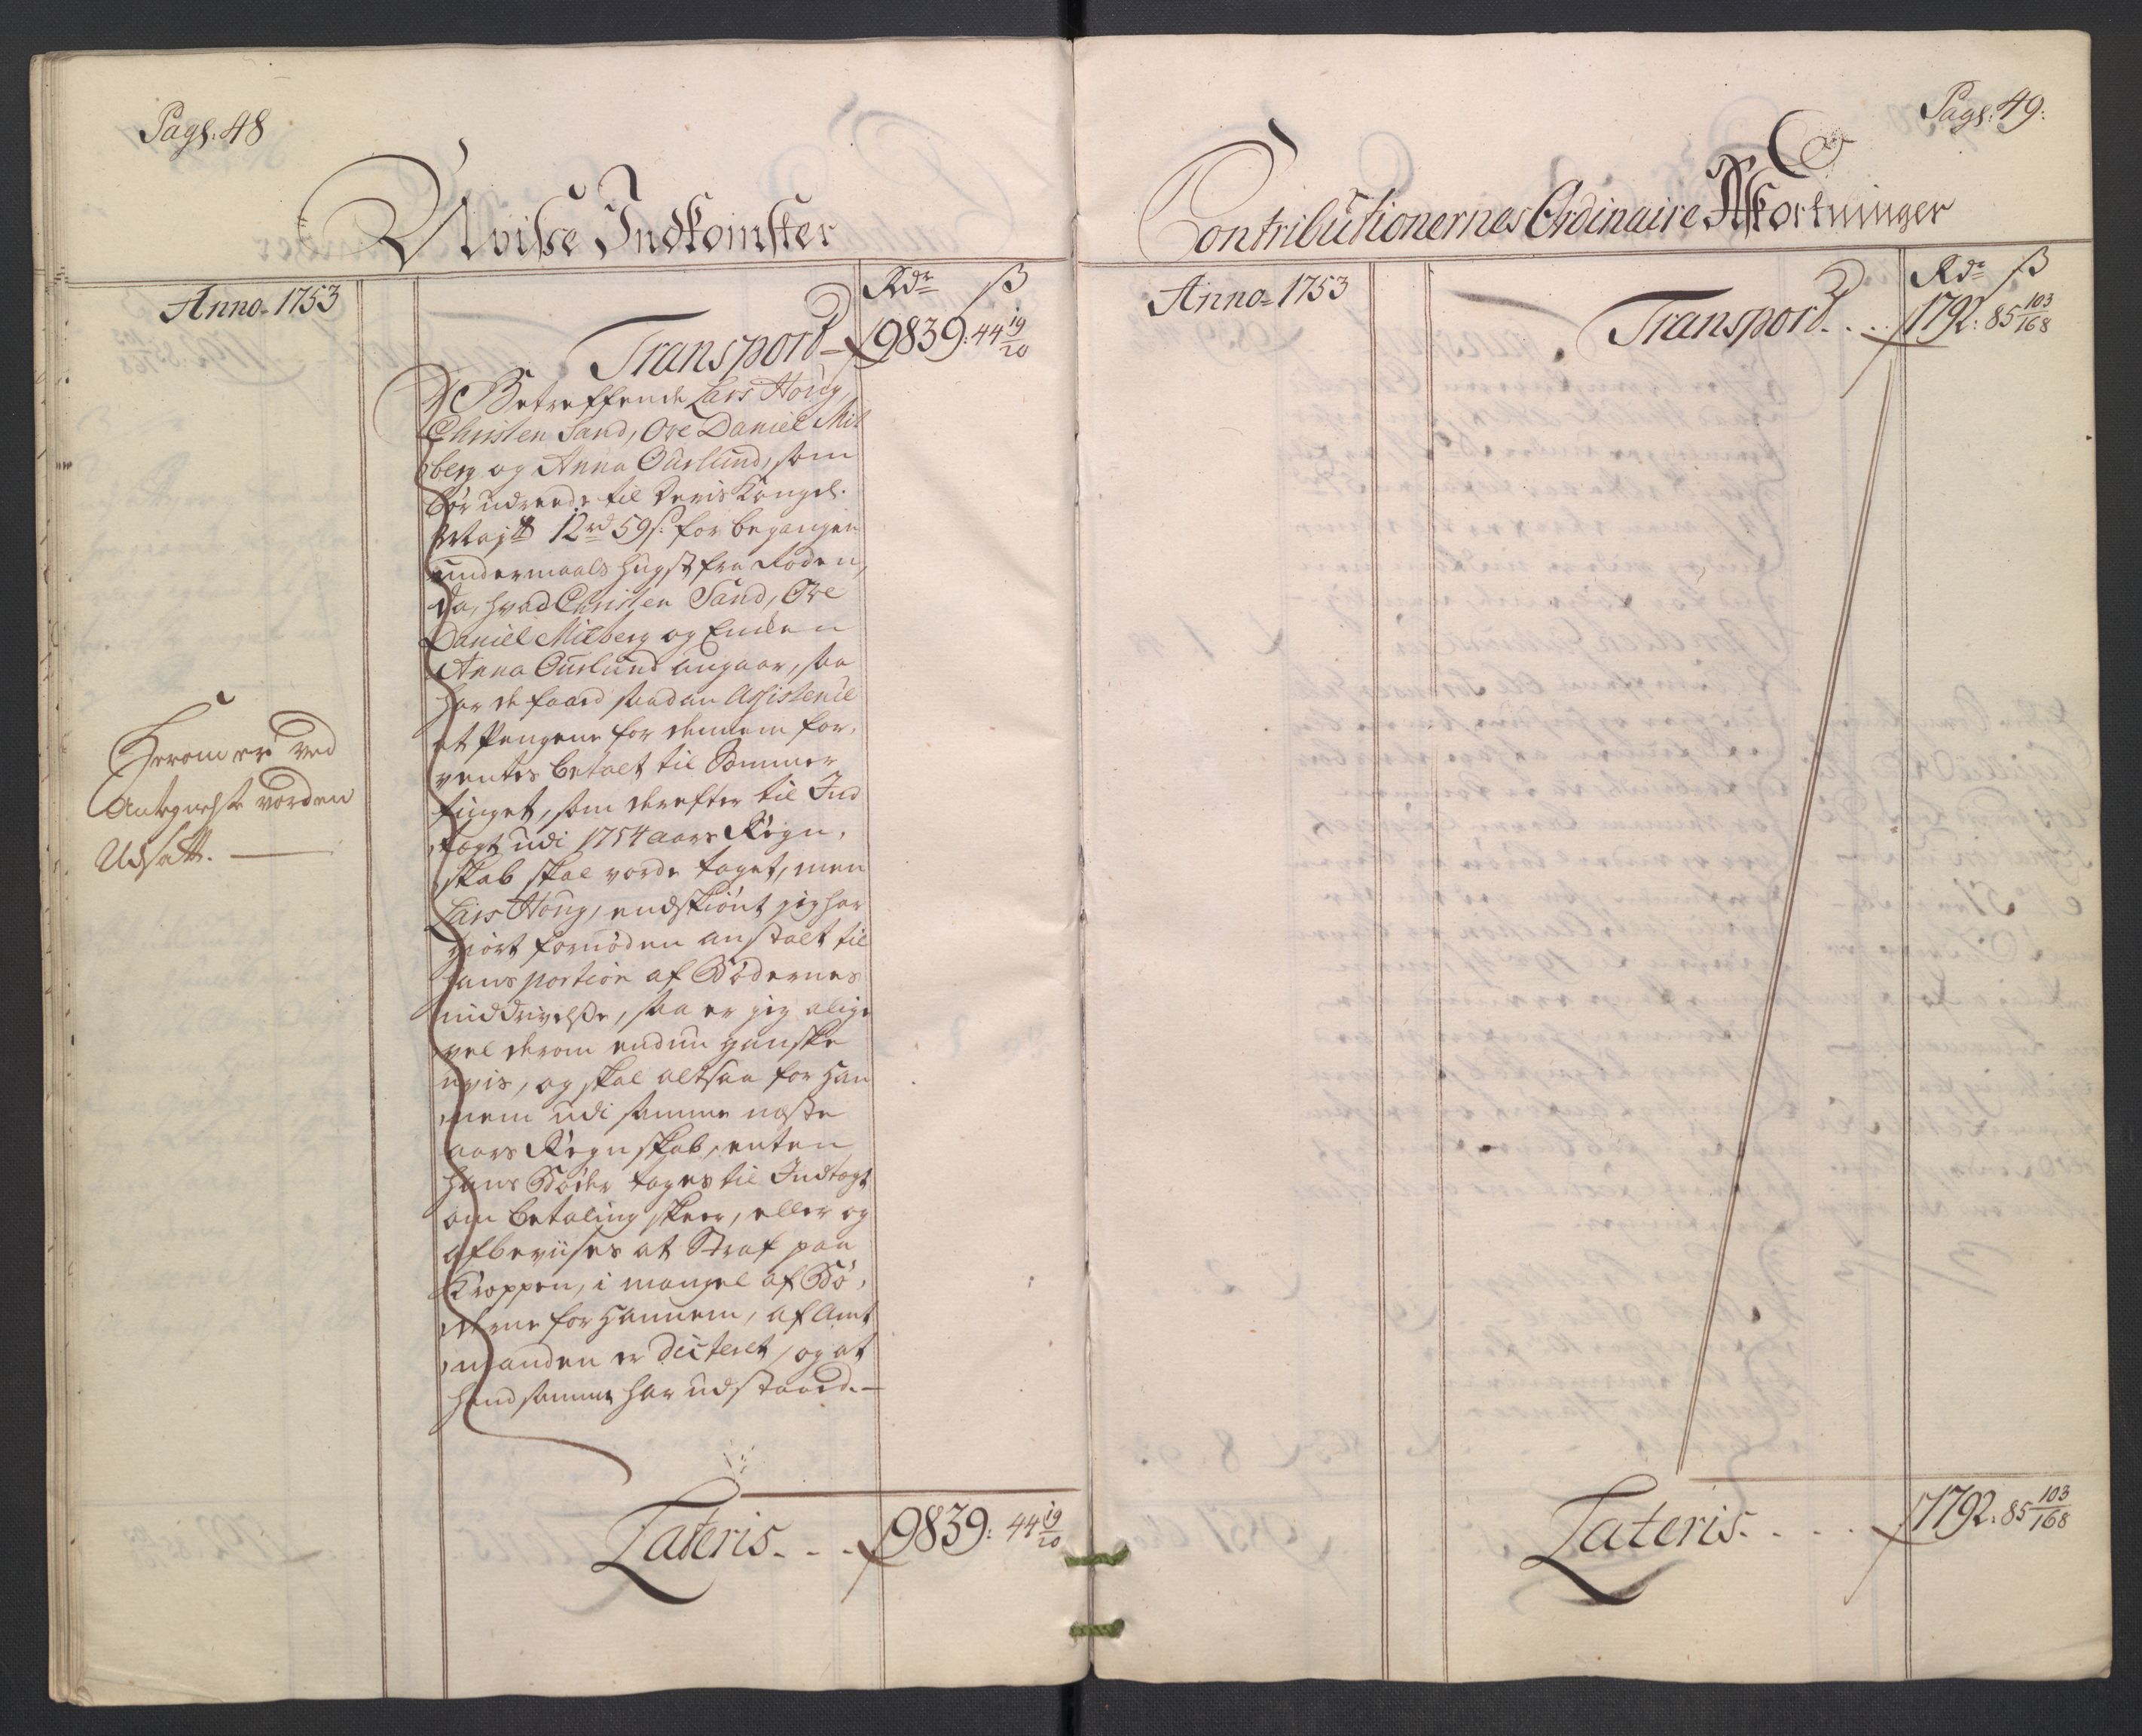 Pag: 48
Uvisse Indkomster
Anno 1753
Rdr ß
Transport - 9839: 44 19/20
Betreffende Lars Houg,
Christen Sand, Ove Daniel Mil
berg og Anna Ourlund, som
bør udreede til Deris Kongel:
Majts 12rd 59s: for begangen
undermaals hugst fra Roden,
da, hvad Christen Sand, Ove
Daniel Milberg og Enken
Anna Ourlund angaar, saa
har de faaed saadan Assistence
at Pengene for dennem for,
ventes betalt til Sommer
tinget, som derefter til Ind
tægt udi 1754 aars Regn,
skab skal vorde taget, men
Lars Houg, endskiønt jeg har
giort fornøden anstalt til
hans portion af Bødernes
inddrivelse, saa er jeg alige
vel derom endnu ganske
uvis, og skal altsaa for han
nem udi samme næste
aars Regnskab, enten
hans Bøder tages til Indtægt
om betaling skeer, eller og
afbeviises at Straf paa
Kroppen, i mangel af Bø,
derne for hannem, af Amt
manden er dicteret, og at
hand samme har udstaaed. -
Herom er ved
Antegnelse vorden
Udsatt.
Lateris. . . 9839: 44 19/20
Pag: 49:
Contributionernes Ordinaire Afkortninger
Anno 1753
Rdr ß
Transport. . . 1792: 85 103/168
Lateris. . . . 1792: 85 103/168